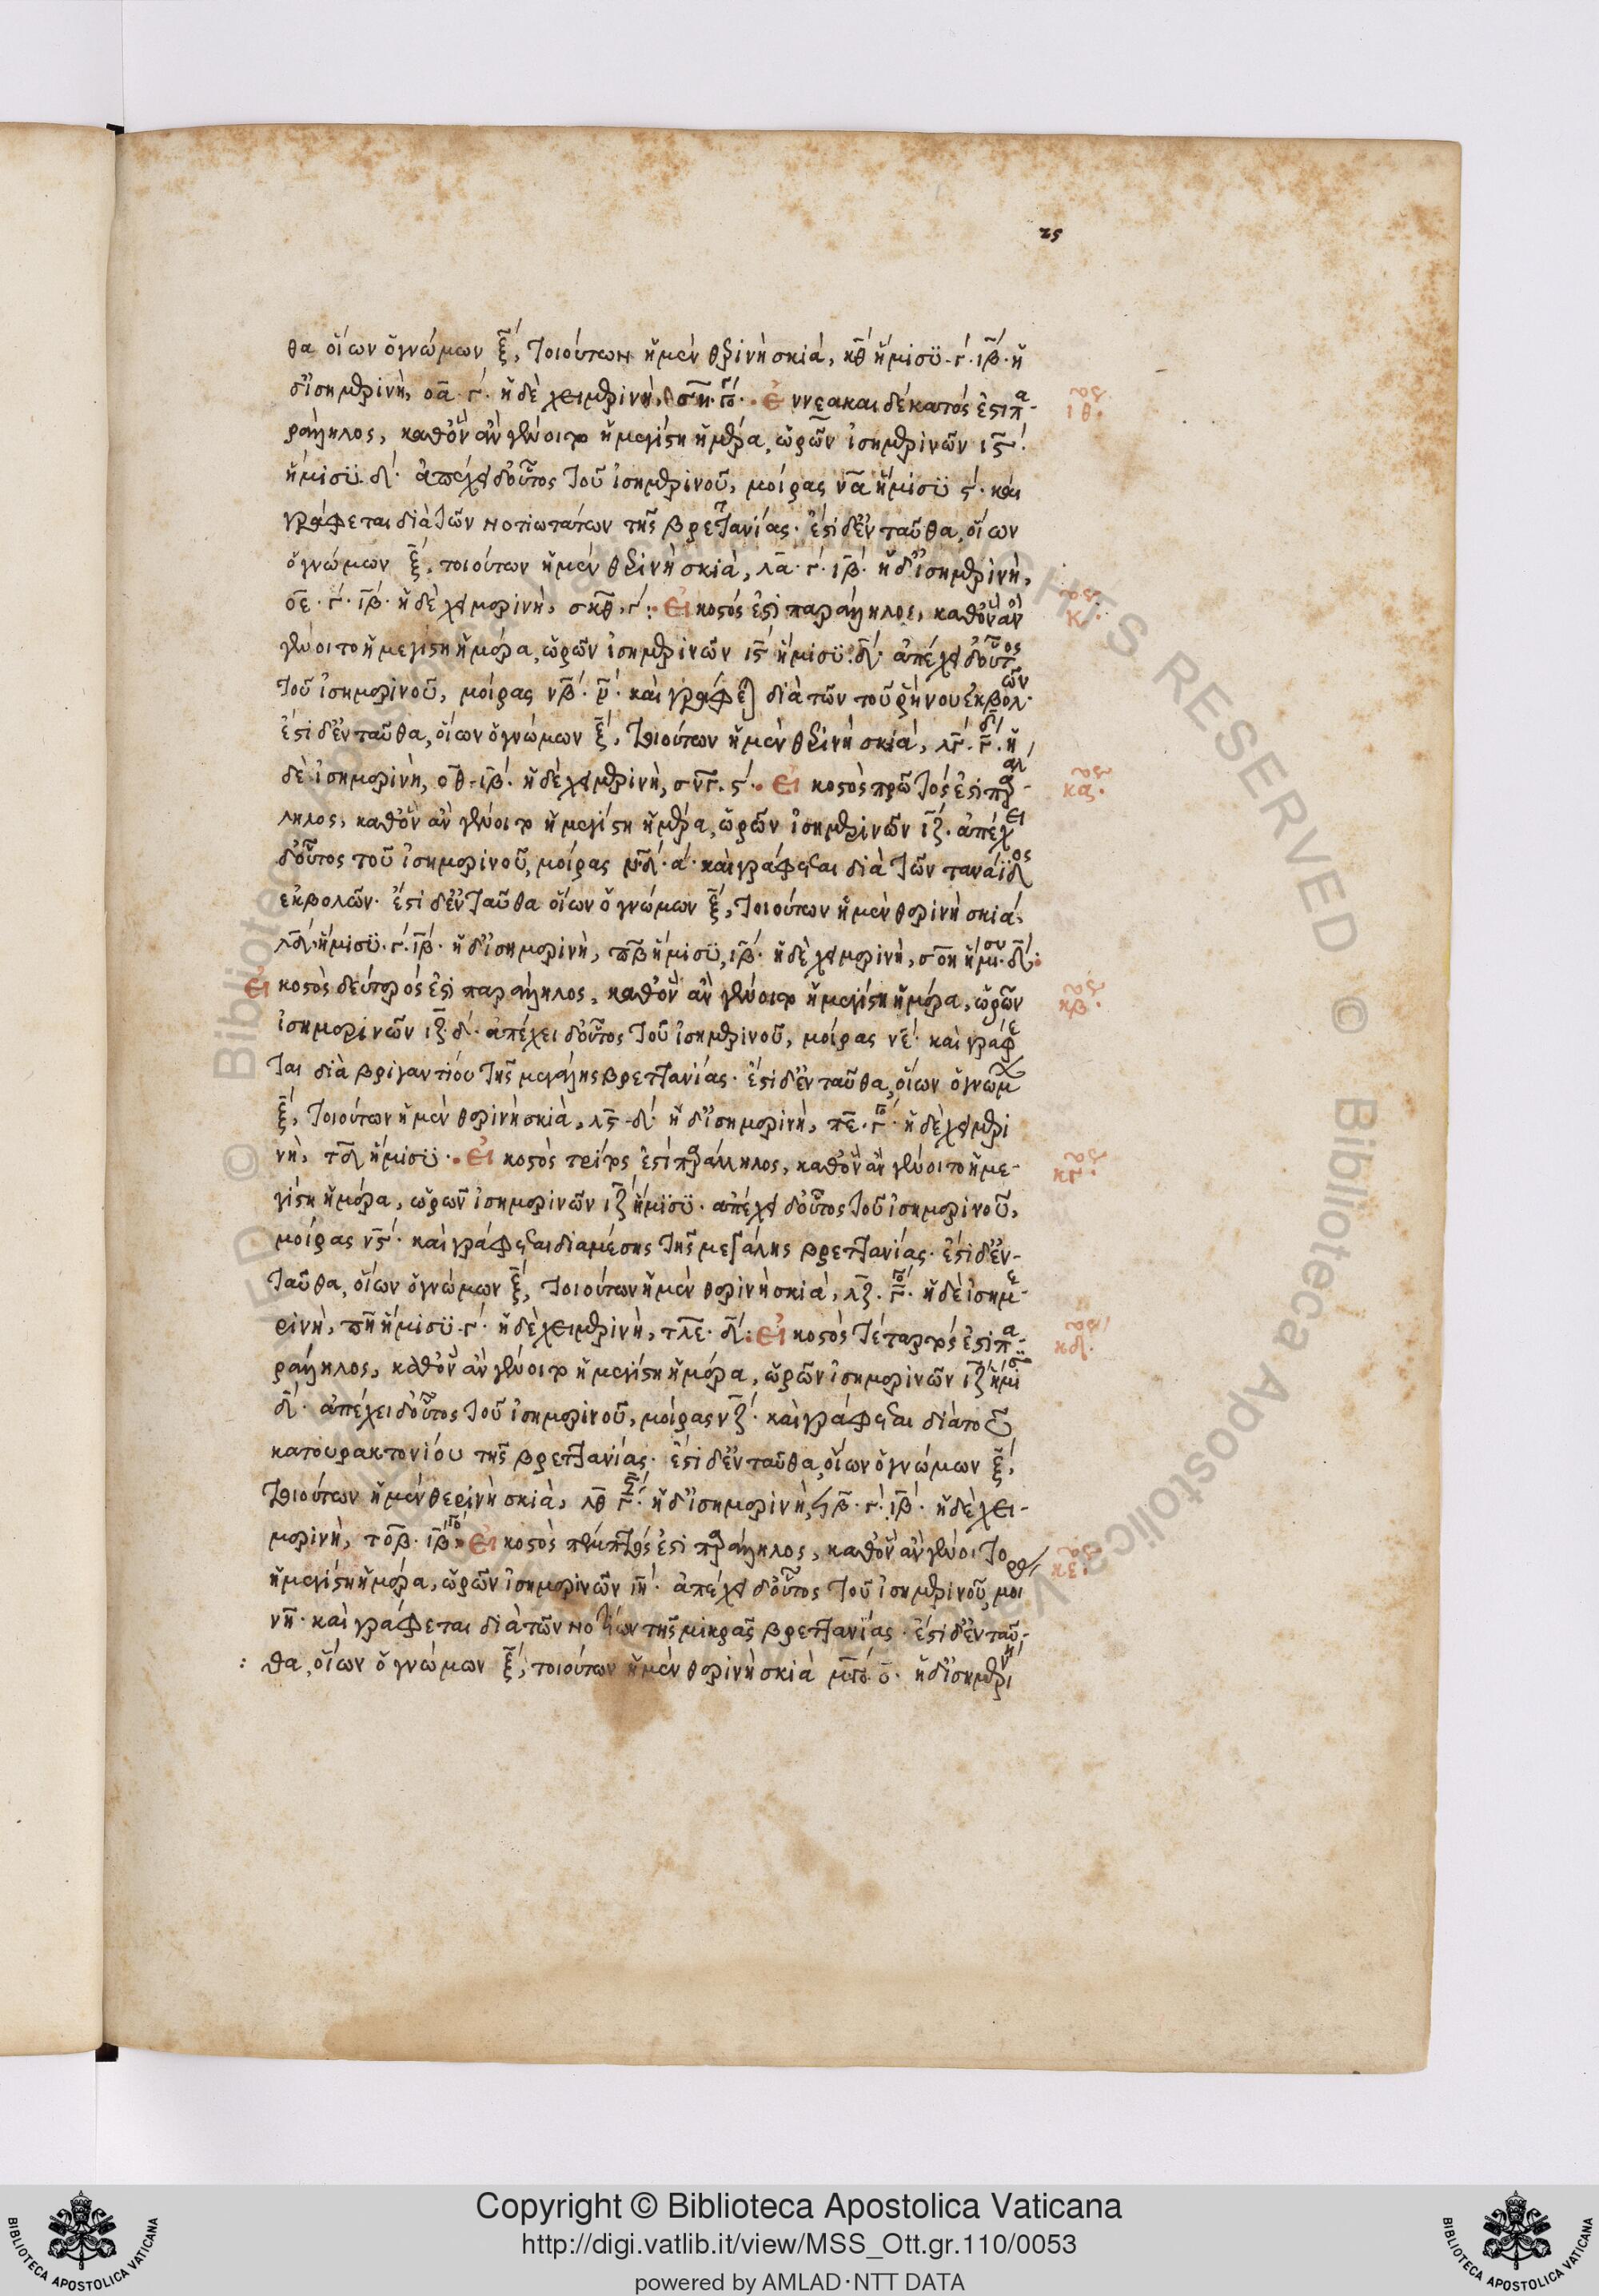 25
θα οἵων ὁ γνώμων ξ, τοιούτων ἡ μὲν θερινὴ σκιά, κθ ἥμισυ. γ. ιβ. ἡ
δ ἰσημερινὴ, οα. γ. ἡ δὲ χειμερινὴ, ἐννεακαιδέκατός ἐστι πα-
ιθ.
ράλληλος, καθ ὃν ἂν γένοιτο ἡ μεγίστη ἡμέρα, ὡρῶν ἰσημερινῶν ις
ἥμισυ δ. ἀπέχει δ οὗτος τοῦ ἰσημερινοῦ, μοίρας να ἥμισυ ς. και
γράφεται διὰ τῶν νοτιωτάτων τῆς βρεττανίας. ἔστι δ ἐνταῦθα, οἵων
ὁ γνώμων ξ, τοιούτων ἡ μὲν θερινὴ σκιὰ, λα. γ. ιβ. ἡ δ ἰσημερινὴ,
οε. γ. ιβ. ἡ δὲ χειμερινὴ, σκθ, γ: εἰκοστός ἐστι παράλληλος, καθ ὃν ἂν
κ.
γένοιτο ἡ μεγίστη ἡμέρα, ὡρῶν ἰσημερινῶν ις ἥμισυ δ. ἀπέχει δ οὗτος
τοῦ ἰσημερινοῦ, μοίρας νβ. καὶ γράφεται διὰ τῶν τοῦ ῥήνου ἐκβολῶν.
ἔστι δ ἐνταῦθα, οἵων ὁ γνώμων ξ, τοιούτων ἡ μὲν θερινὴ σκιά, λγ. ἡ
δὲ ἰσημερινὴ, οθ. ιβ. ἡ δὲ χειμερινὴ, σνγ. ς. εἰκοστὸς πρῶτός ἐστι παράλ-
κα.
ληλος, καθ ὃν ἂν γένοιτο ἡ μεγίστη ἡμέρα, ὡρῶν ἰσημερινῶν ιζ. ἀπέχει
δ οὗτος τοῦ ἰσημερινοῦ, μοίρας νδ. α. καὶ γράφεται διὰ τῶν ταναΐδος
ἐκβολῶν. ἔστι δ ἐνταῦθα οἵων ὁ γνώμων ξ, τοιούτων ἡ μὲν θερινὴ σκιά,
λδ, ἥμισυ. γ. ιβ. ἡ δ ἰσημερινὴ, πβ ἥμισυ, ιβ. ἡ δὲ χειμερινὴ, σοη ἥμισυ. δ:
εἰκοστὸς δεύτερός ἐστι παράλληλος, καθ ὃν ἂν γένοιτο ἡ μεγίστη ἡμέρα, ὡρῶν
κβ.
ἰσημερινῶν ιζ. δ. ἀπέχει δ οὗτος τοῦ ἰσημερινοῦ, μοίρας νε. καὶ γράφε
ται διὰ βριγαντίου τῆς μεγάλης βρεττανίας. ἔστι δ ἐνταῦθα, οἵων ὁ γνώμων
ξ, τοιούτων ἡ μὲν θερινὴ σκιὰ, λς. δ. ἡ δ ἰσημερινὴ, πε. ἡ δὲ χειμερι
νὴ, τδ ἥμισυ. εἰκοστὸς τρίτος ἐστὶ παράλληλος, καθ ὃν ἂν γένοιτο ἡ με-
κγ.
γίστη ἡμέρα, ὡρῶν ἰσημερινῶν ιζ ἥμισυ. ἀπέχει δ οὗτος τοῦ ἰσημερινοῦ,
μοίρας νς. καὶ γράφεται διὰ μέσης τῆς μεγάλης βρεττανίας. ἔστι δ ἐν-
ταῦθα, οἵων ὁ γνώμων ξ, τοιούτων ἡ μὲν θερινὴ σκιὰ, λζ. ἡ δὲ ἰσημε-
ρινὴ, πη ἥμισυ. γ. ἡ δὲ χειμερινὴ, τλε. δ: εἰκοστὸς τέταρτός ἐστι πα-
κδ.
ράλληλος, καθ ὃν ἂν γένοιτο ἡ μεγίστη ἡμέρα, ὡρῶν ἰσημερινῶν ιζ ἥμισυ
δ. ἀπέχει δ οὗτος τοῦ ἰσημερινοῦ, μοίρας νζ. καὶ γράφεται διὰ τοῦ
κατουρακτονίου τῆς βρεττανίας. ἔστι δ ἐνταῦθα, οἵων ὁ γνώμων ξ,
τοιούτων ἡ μὲν θερινὴ σκιὰ, λθ ἡ δ ἰσημερινὴ, ϟβ. γ. ιβ. ἡ δὲ χει-
μερινὴ, τοβ. ιβ εἰκοστὸς πέμπτός ἐστι παράλληλος, καθ ὃν ἂν γένοιτο
κε.
ἡ μεγίστη ἡμέρα, ὡρῶν ἰσημερινῶν ιη. ἀπέχει δ οὗτος τοῦ ἰσημερινοῦ, μοίρας
νη. καὶ γράφεται διὰ τῶν νοτίων τῆς μικρᾶς βρεττανίας. ἔστι δ ἐνταῦ-
θα, οἵων ὁ γνώμων ξ, τοιούτων ἡ μὲν θερινὴ σκιὰ ἡ δ ἰσημερινὴ
Copyright © Biblioteca Apostolica Vaticana
http://digi.vatlib.it/view/MSS_Ott.gr.110/0053
powered by AMLAD·NTT DATA
BIBLIOTECA APOSTOLICA VATICANA
BIBLIOTECA APOSTOLICA VATICANA